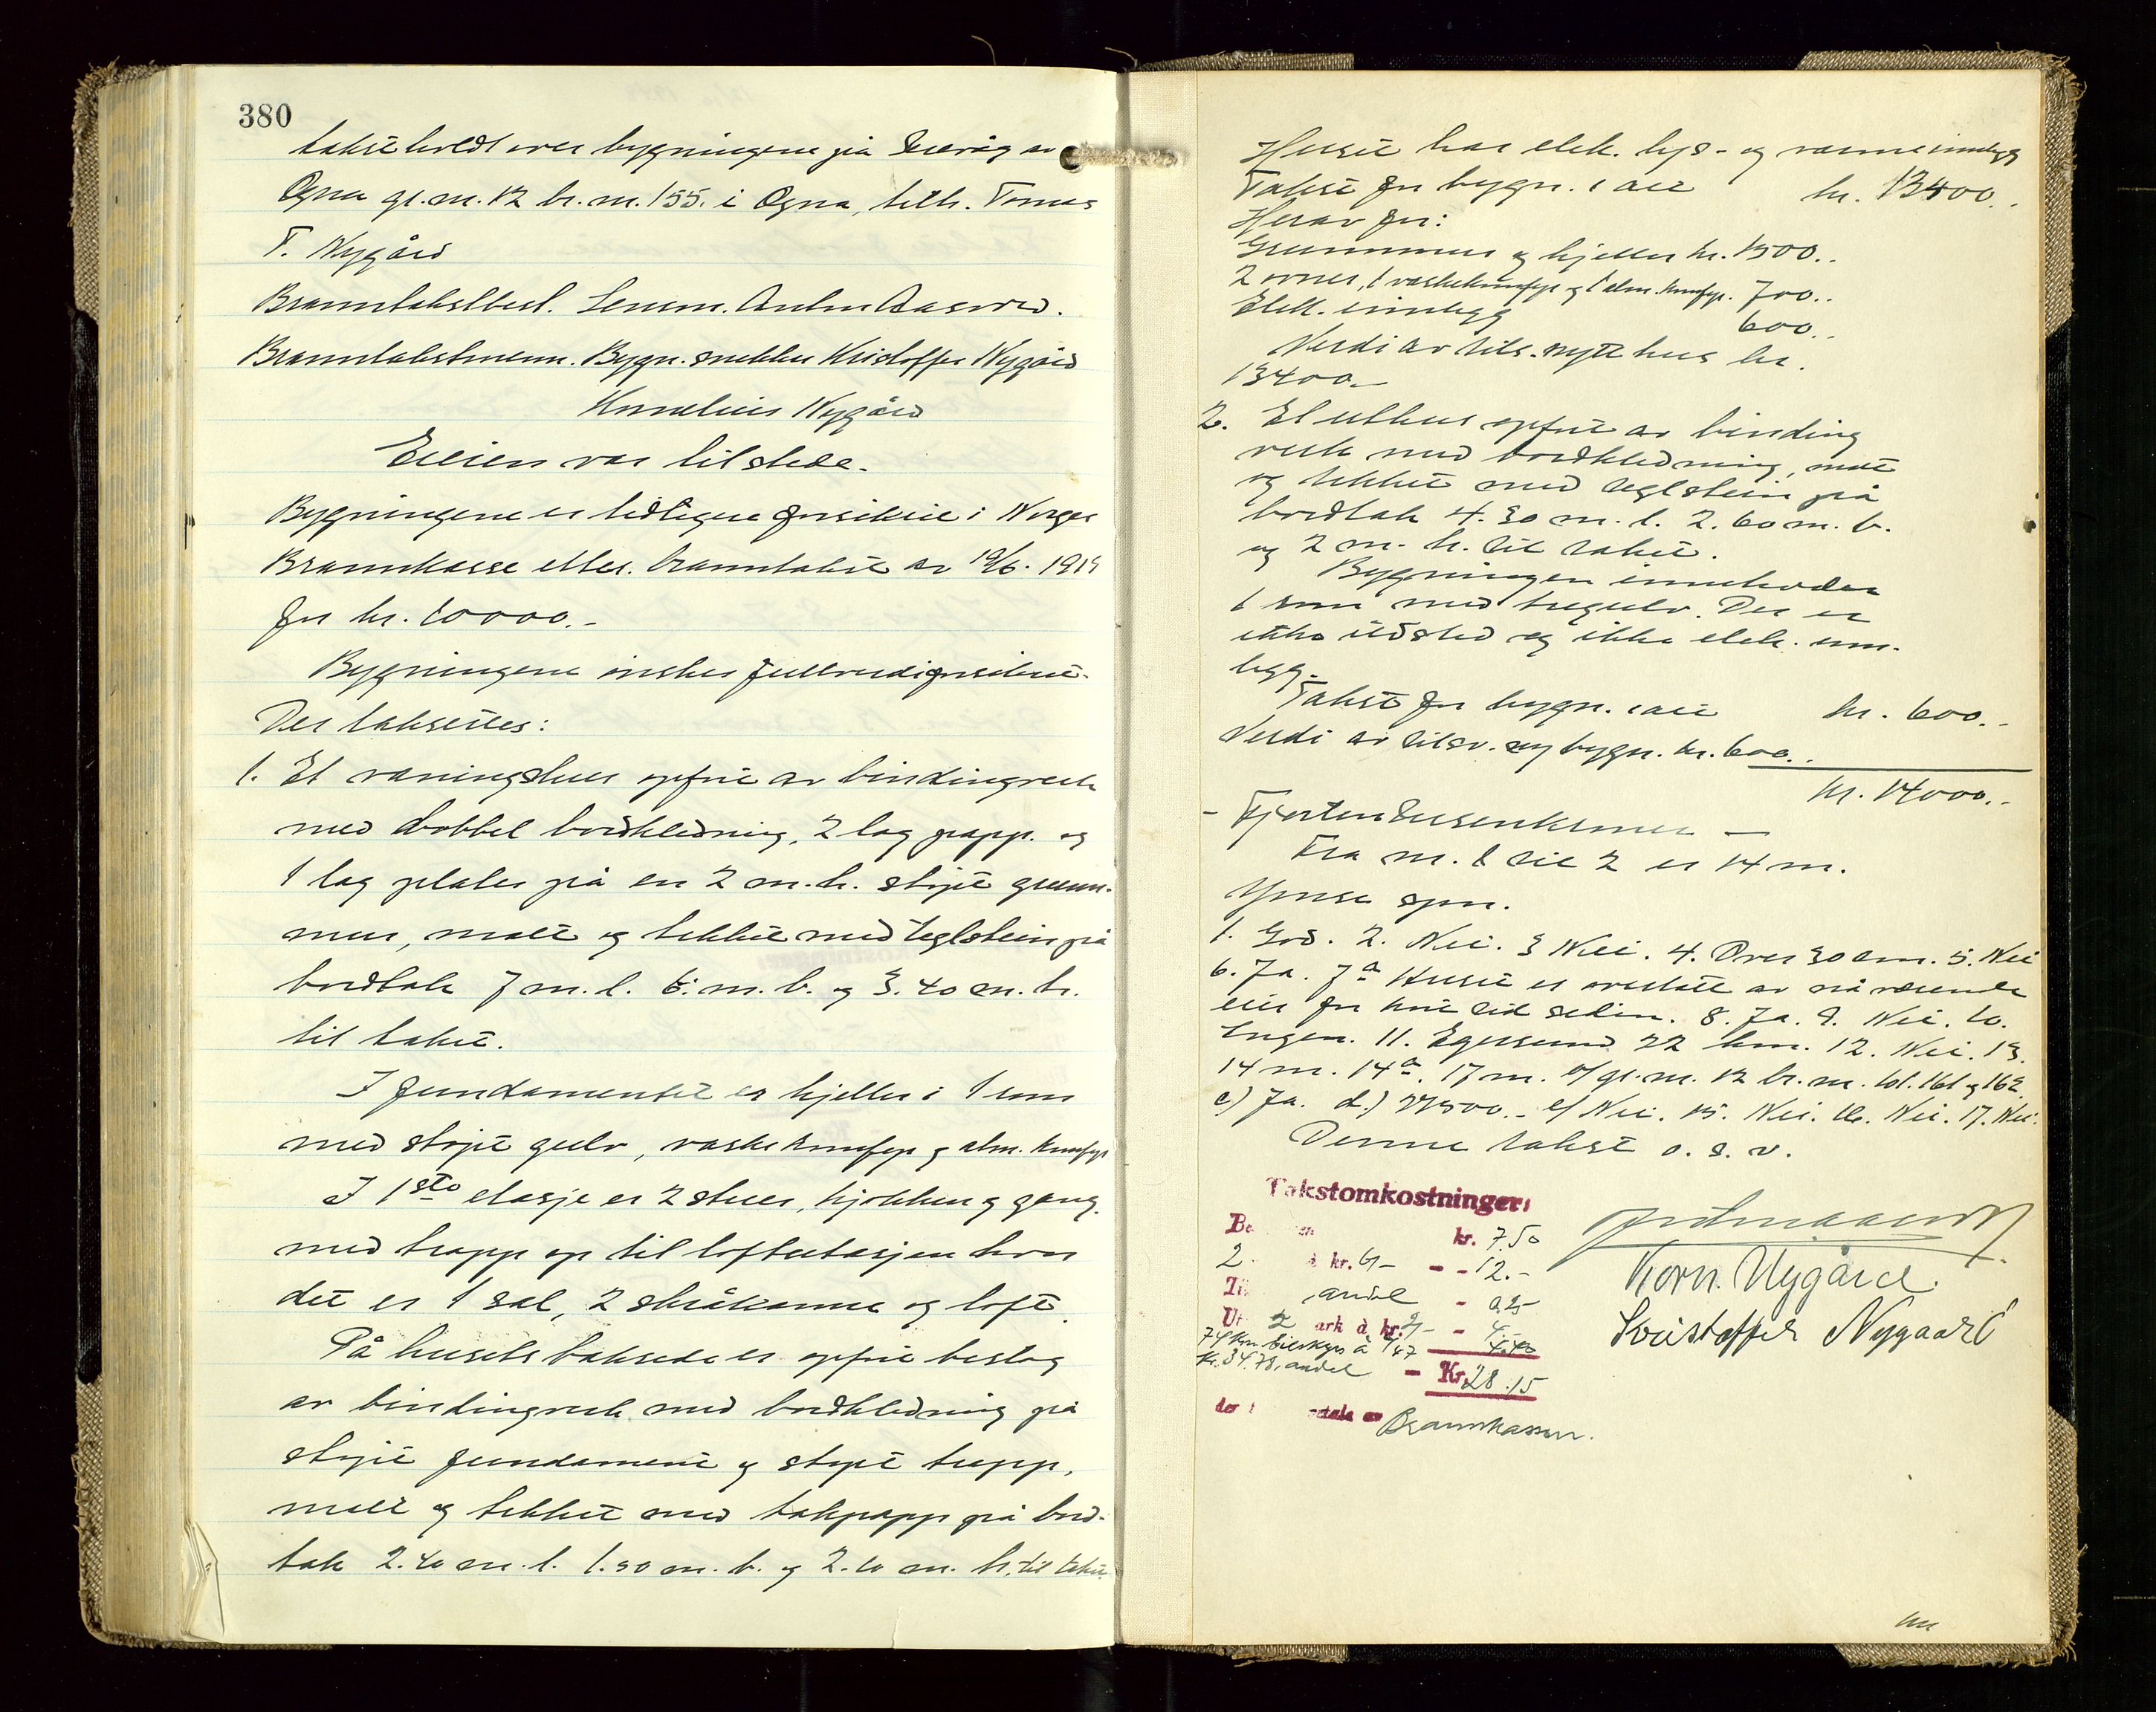 380
takst holdt over bygningene på av
Ogna gr.nr. 12 br.nr. 155 i Ogna, tilh. Tomas
T. Nygård
Branntakstbest. Lensm. Anton Aasvold.
Branntakstmenn. Bygn.snekker Kristoffer Nygård
Kornelius Nygård
Eieren var tilstede.
Bygningene er tidligere forsikret i Norges
Brannkasse etter branntakst av 19/6. 1919
for kr. 10000.-
Bygningene ønskes fullverdiforsikret.
Der takseres:
1. Et våningshus opført av bindingverk
med dobbel bordkledning, 2 lag papp. og
1 lag plater på en 2 m.h. støpt grunn-
mur, malt og tekket med teglstein på
bordtak 7 m.l. 6. m.b. og 3.40 m.h.
til taket.
I fundamentet er kjeller i 1 rum
med støpt gulv, vaskekomfyr og alm. komfyr
I 1ste etasje er 2 stuer, kjøkken og gang
med trapp op til loftsetasjen hvor
det er 1 sal, 2 skråkamre og loft.
På husets bakside er opført beslag
av bindingverk med bordkledning på
støpt fundament og støpt trapp,
malt og tekket med takpapp på bord-
tak 2.40 m.l. 1.50 m.b. og 2.10 m.h. til taket.
Huset har elek. lys- og varmeinnlegg
Takst for bygn. i alt kr. 13400..
Herav for:
Grunnmur og kjeller kr. 1500..
2 ovner, 1 vaskekomfyr og 1 alm. komfyr. 700..
Elek. innlegg 600..
Verdi av tils. nytt hus kr.
13400.-
2. Et uthus opført av binding
verk med bordkledning, malt
og tekket med teglstein på
bordtak 4.30 m.l. 2.60 m.b.
og 2 m.h. til taket.
Bygningen inneholder
1 rum med tregulv. Der er
ikke ildsted og ikke elek. inn-
legg.
Takst for bygn. i alt kr. 600.-
Verdi av tilsv. ny bygn. kr. 600..
kr. 14000.-
- Fjortentusenkroner -
Fra nr. 1 til 2 er 14 m.
Ymse spm.
1. God. 2. Nei. 3 Nei. 4. Over 30 cm. 5. Nei
6. Ja. 7a Huset er overtatt av nåværende
eier for kort tid siden. 8. Ja. 9. Nei. 10.
Ingen. 11. Egersund 22 km. 12. Nei. 13.
14 m. 14a. 17 m. b/ gr.nr. 12 br.nr. 101. 161 og 162
c) Ja. d.) 27500.- e/ Nei. 15. Nei. 16. Nei. 17. Nei.
Denne takst o.s.v.
Takstomkostninger:
kr. 7.50
2 à kr. 6/- - - 12.-
andel - 0.25
2 ark à kr. 2/- - 4.-
74 km bilskyss à 47 4.40
kr. 34.78, andel - Kr. 28.15
Brannkassen.
Korn. Nygård.
Kristoffer Nygaard